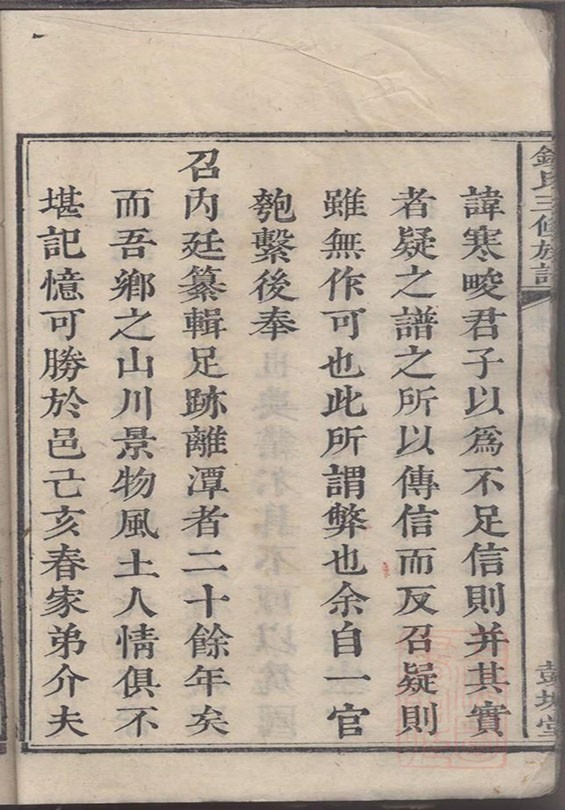 氏三修族譜
諱寒畯君子以為不足信則并其實
者疑之譜之所以傳信而反召疑則
雖無作可也此所謂弊也余自一官
匏繫後奉
召內廷纂輯足跡離潭者二十餘年矣
而吾鄉之山川景物風土人情俱不
堪記憶可勝於邑己亥春家弟介夫